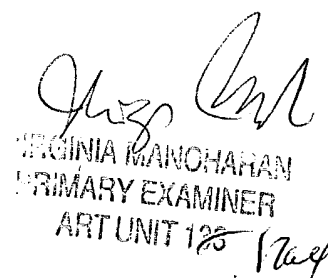 VIRGINIA MANOHARAN
PRIMARY EXAMINER
ART UNIT